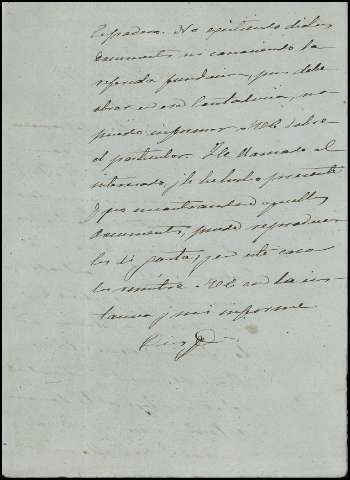 Espadero. No existiendo dichos
documents ni conociendo la
referida fundacion, pues debe
obrar en esa Contaduria, no
puedo informar a V.E. sobre
el particular. He llamado al
interesado, y le he hecho presente
que encontrandose aquellos
documents, puede reproducir
los si gusta, y en este caso
los remitire a V.E. con la ins-
tancia y mi informe
Dios &